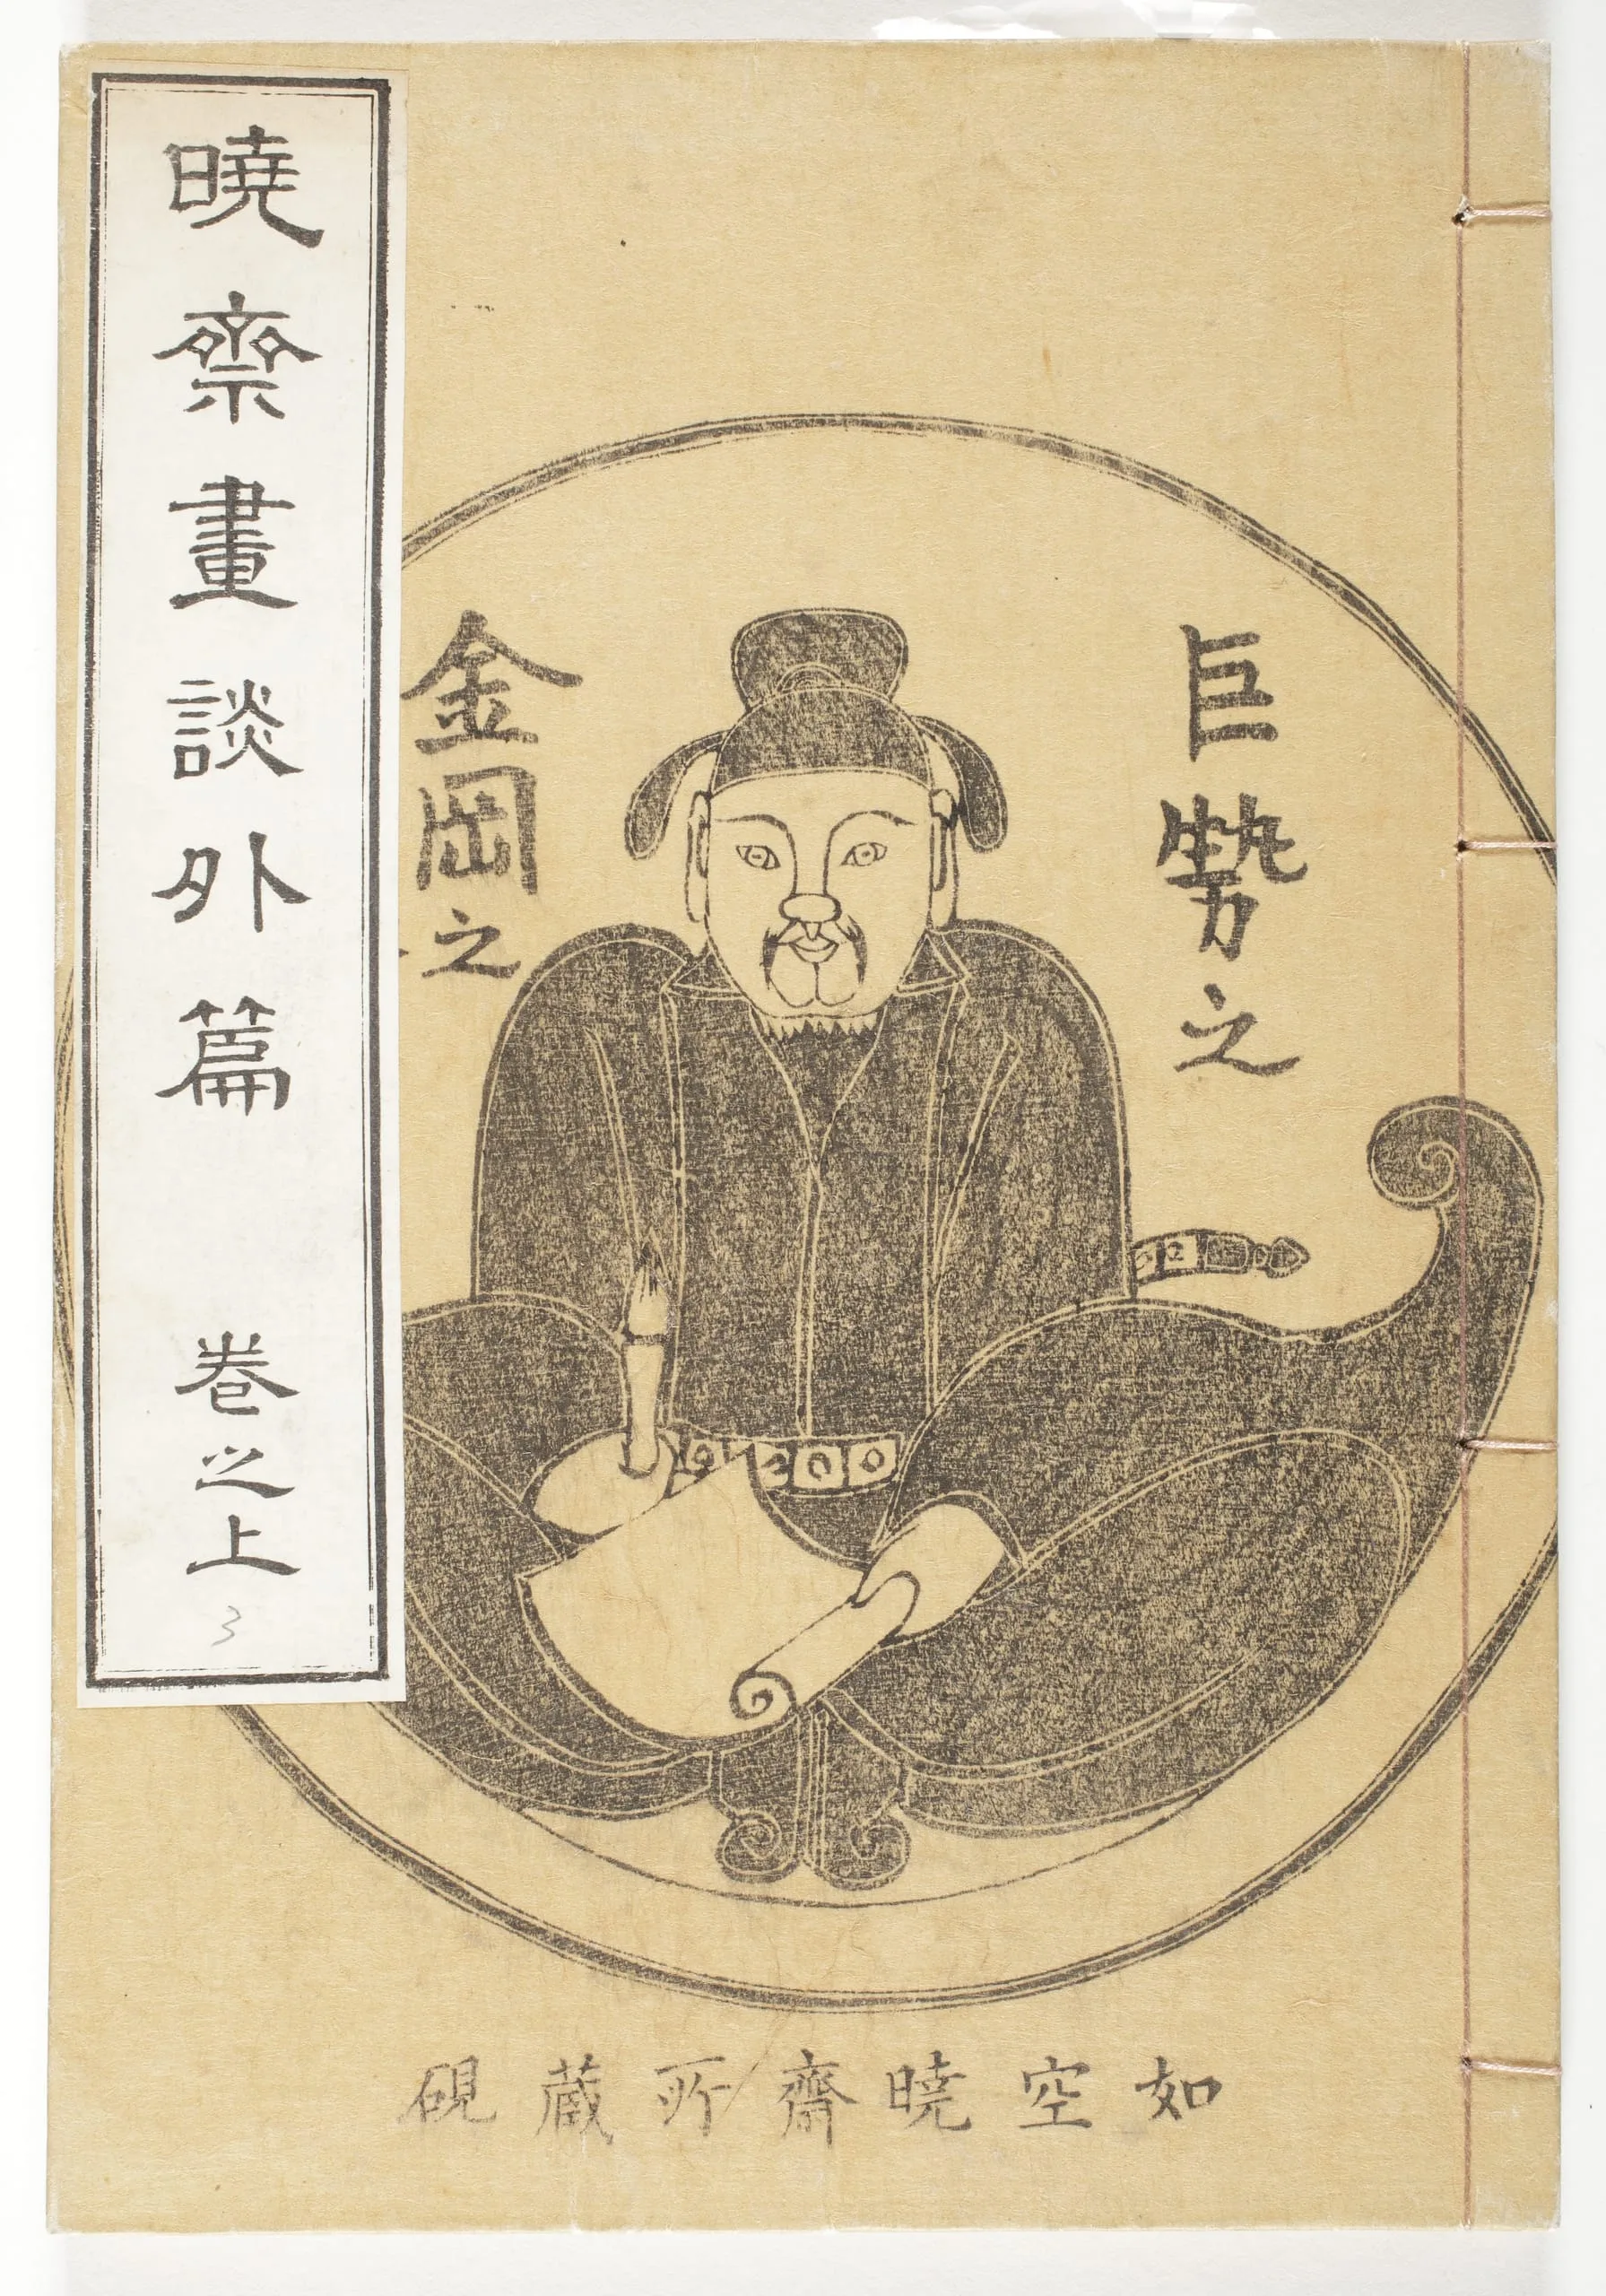 暁斎畫談外篇 巻之上
3
巨勢之
金岡之
如空暁齋所蔵硯